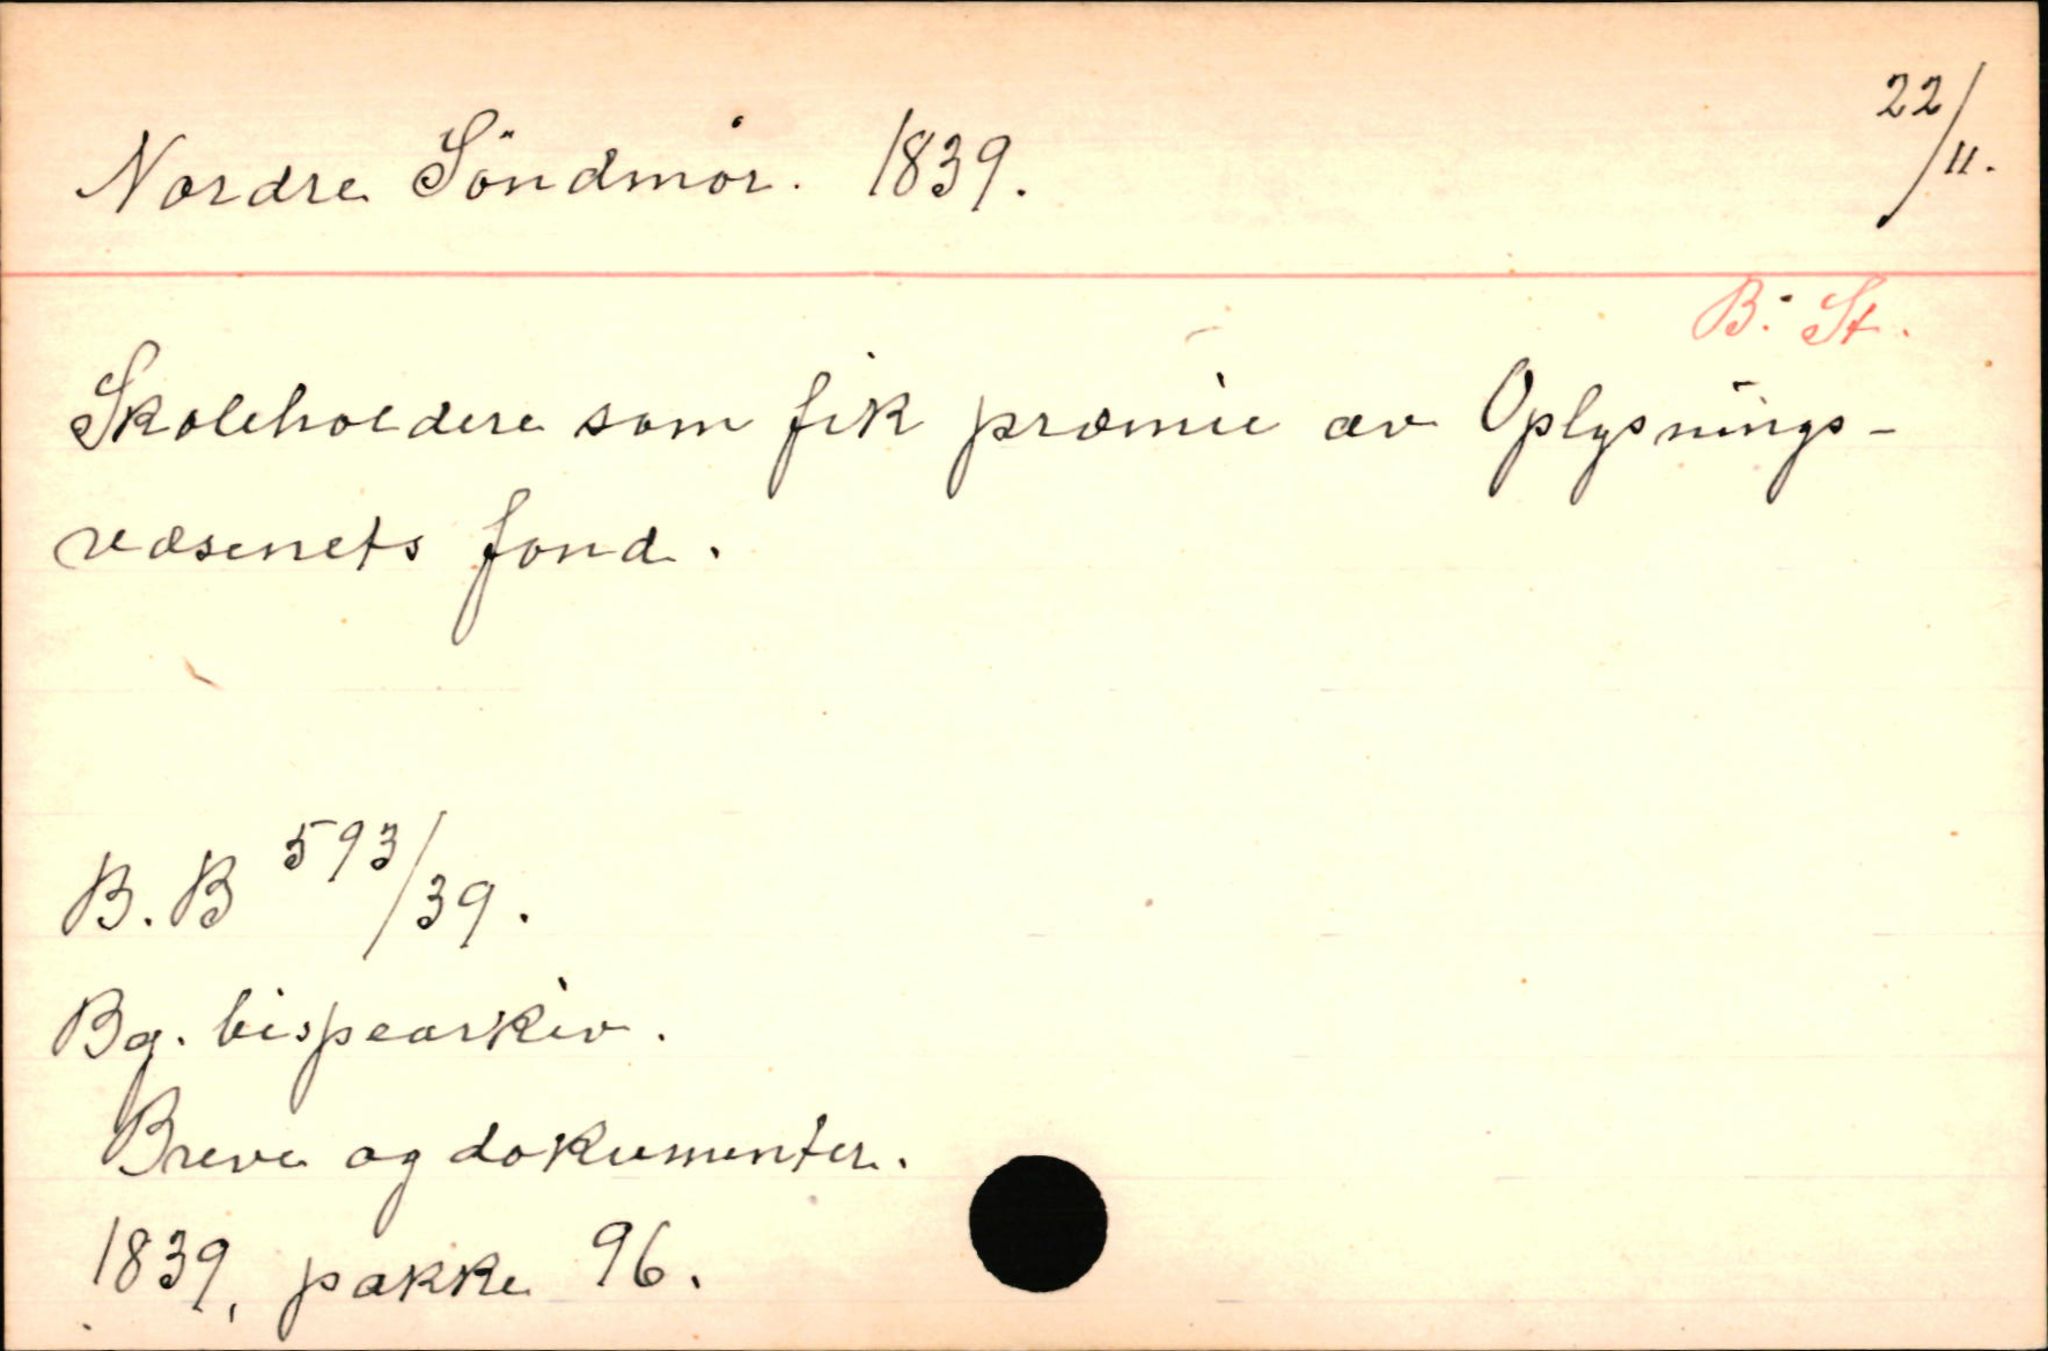 Nordre Söndmör. 1839. 22/11.
B. St.
Skoleholdere som fik præmie av Oplysnings-
væsenets fond.
B. B 593/39.
Bg. bispearkiv.
Breve og dokumenter.
1839, pakke 96.